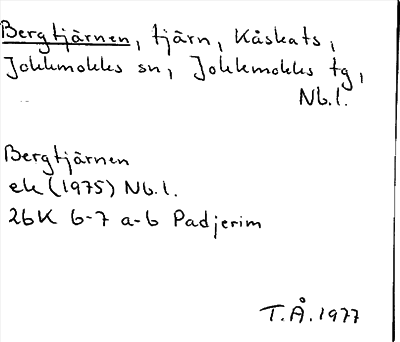 Bergtjärnen, tjärn, Kåskats,
Jokkmokks sn, Jokkmokks tg,
Nb.l.
Bergtjärnen
ek (1975) Nb.l.
26K 6-7 a-b Padjerim
T.Å.1977